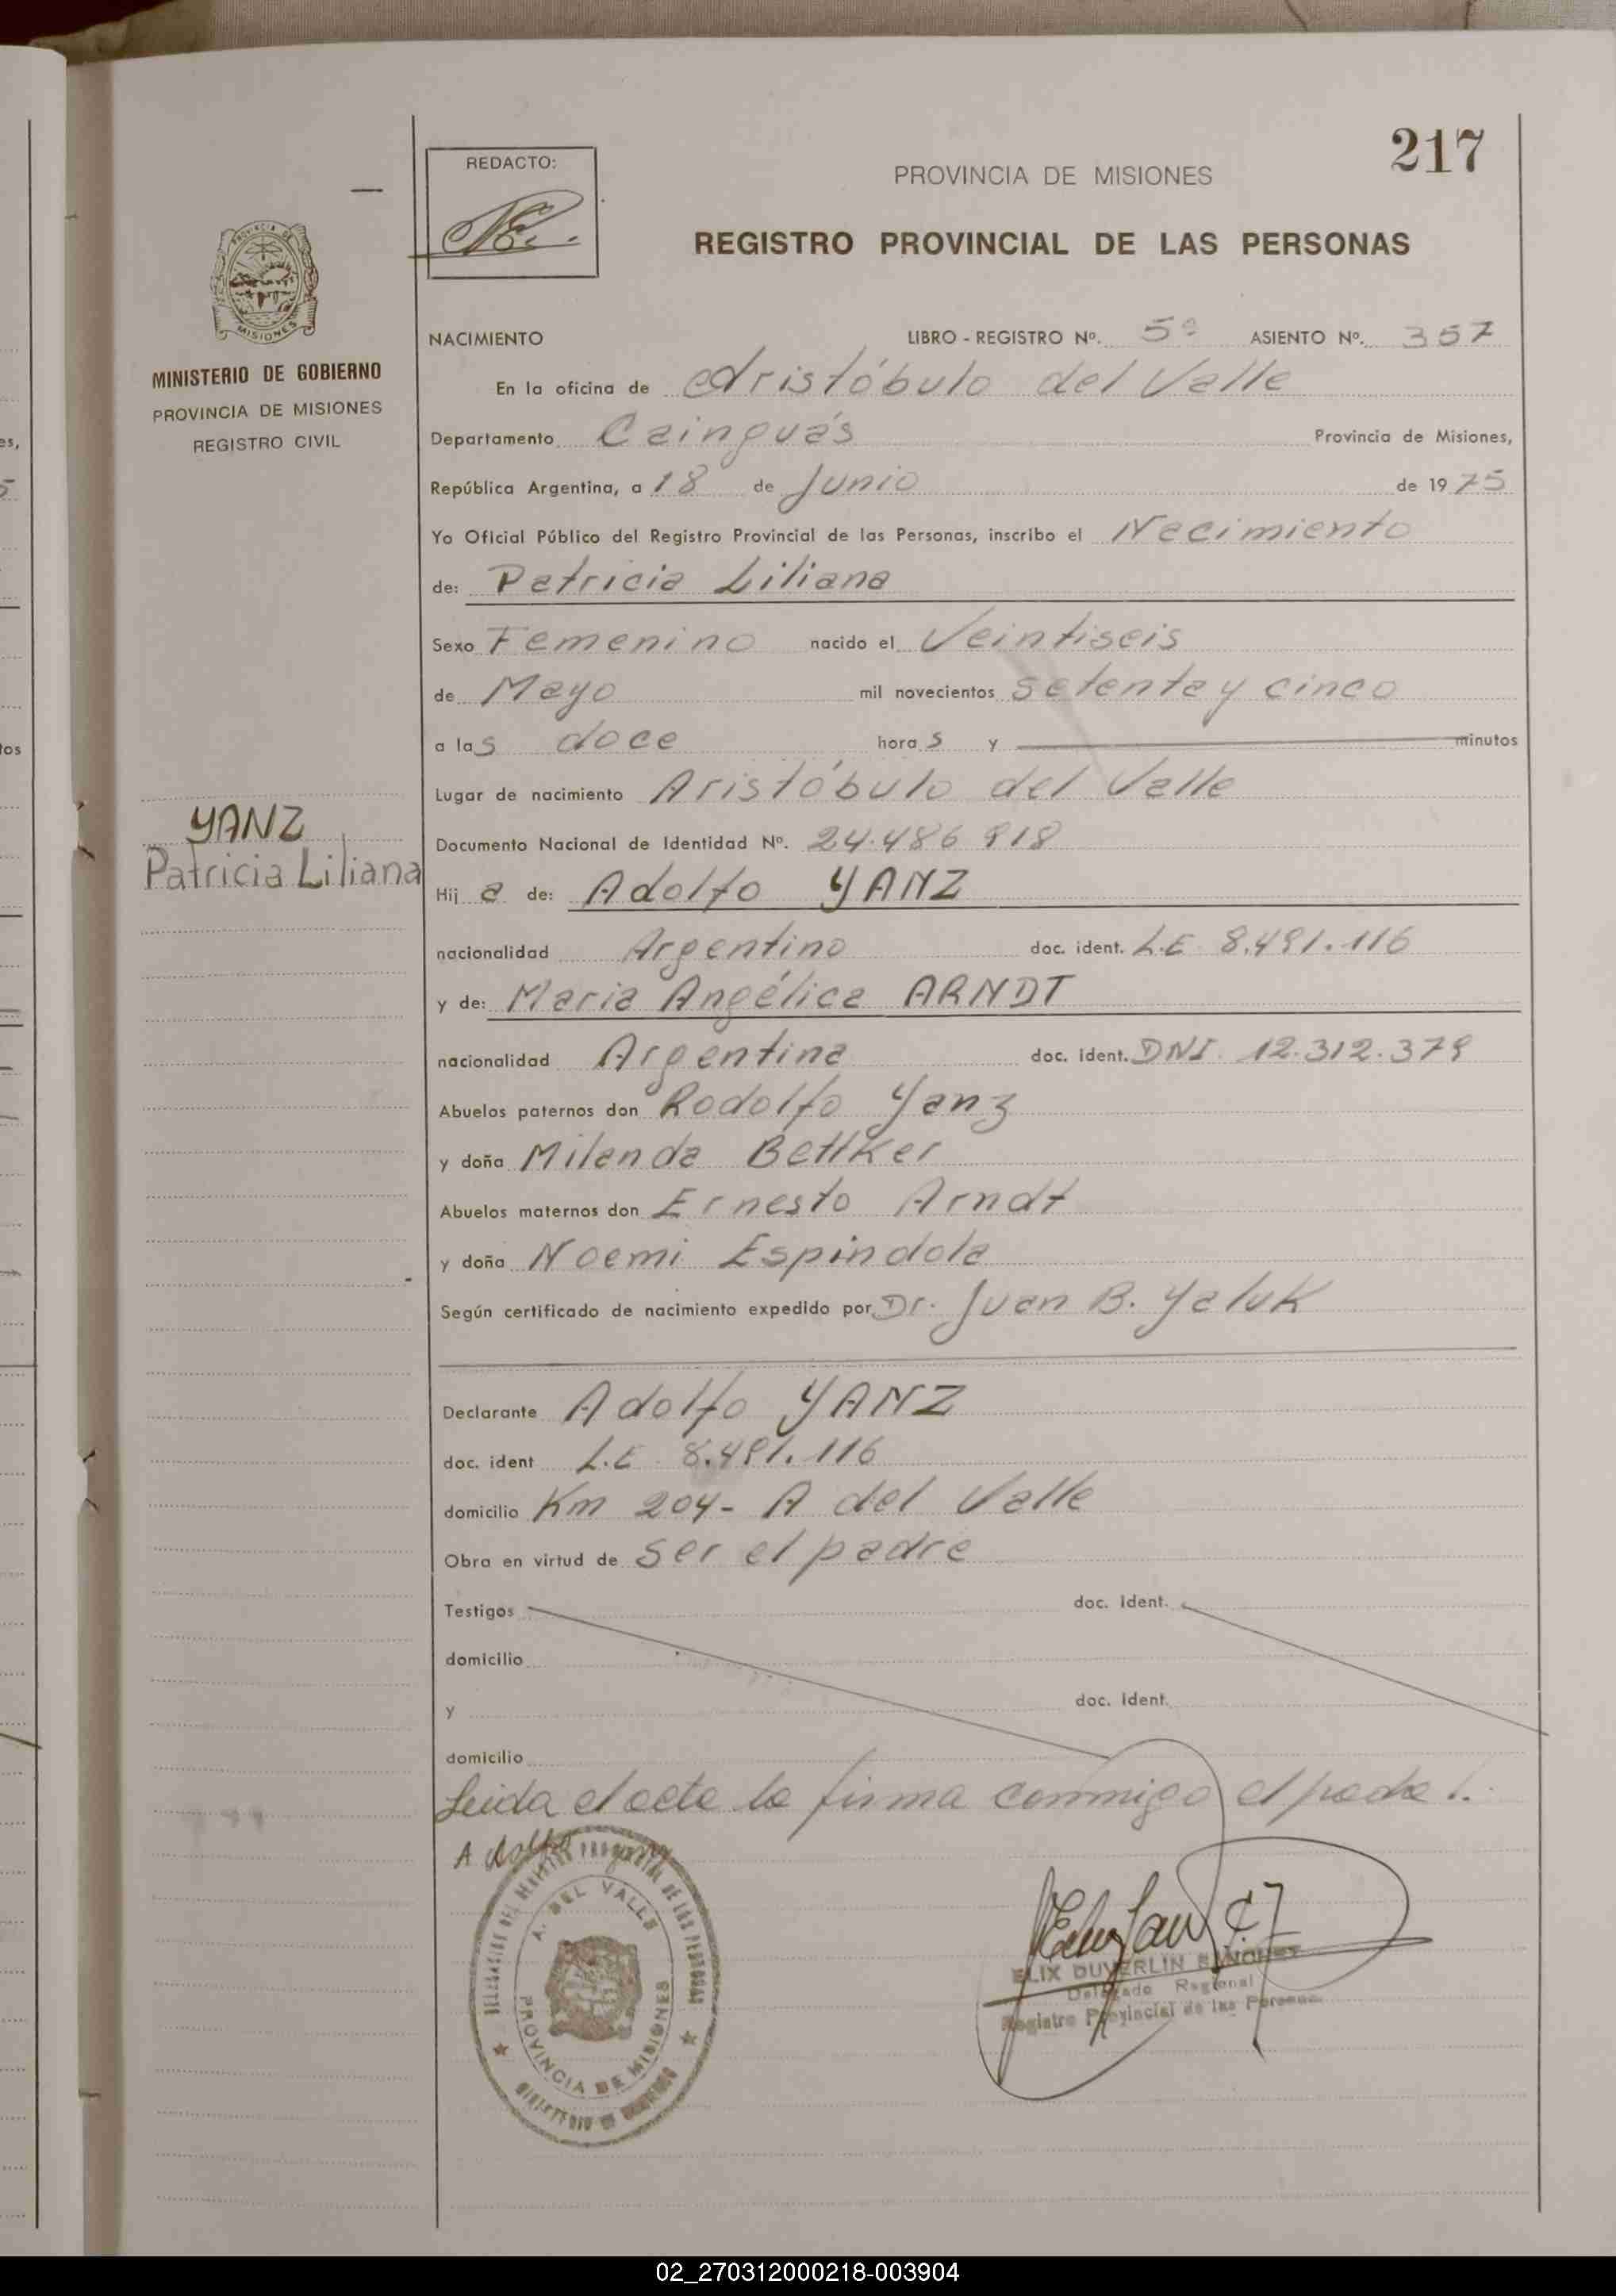 217
REDACTO:
PROVINCIA DE MISIONES
REGISTRO PROVINCIAL DE LAS PERSONAS
MINISTERIO DE GOBIERNO
PROVINCIA DE MISIONES
REGISTRO CIVIL
NACIMIENTO LIBRO - REGISTRO Nº. 5º ASIENTO Nº. 357
En la oficina de Aristóbulo del Valle
Departamento Cainguás Provincia de Misiones,
República Argentina, a 18 de Junio de 1975
Yo Oficial Público del Registro Provincial de las Personas, inscribo el Nacimiento
de: Patricia Liliana
Sexo Femenino nacido el Veintiseis
de Mayo mil novecientos setenta y cinco
a las doce horas y minutos
Lugar de nacimiento Aristóbulo del Valle
YANZ
Patricia Liliana
Documento Nacional de Identidad Nº. 24.486 918
Hija de: Adolfo YANZ
nacionalidad Argentino doc. ident. L.E 8.491.116
y de: Maria Angélica ARNDT
nacionalidad Argentina doc. ident. DNI. 12.312.379
Abuelos paternos don Rodolfo Yanz
y doña Milanda Bettker
Abuelos maternos don Ernesto Arndt
y doña Noemi Espindola
Según certificado de nacimiento expedido por Dr. Juan B. Yaluk
Declarante Adolfo YANZ
doc. ident L.E. 8.491.116
domicilio Km 204- A del Valle
Obra en virtud de ser el padre
Testigos doc. ident.
domicilio
y doc. ident.
domicilio
Leida el acta la firma conmigo el padre
Adolfo
A. DEL VALLE
PROVINCIA DE MISIONES
Delegado Regional
Registro Provincial de las Personas
02_270312000218-003904